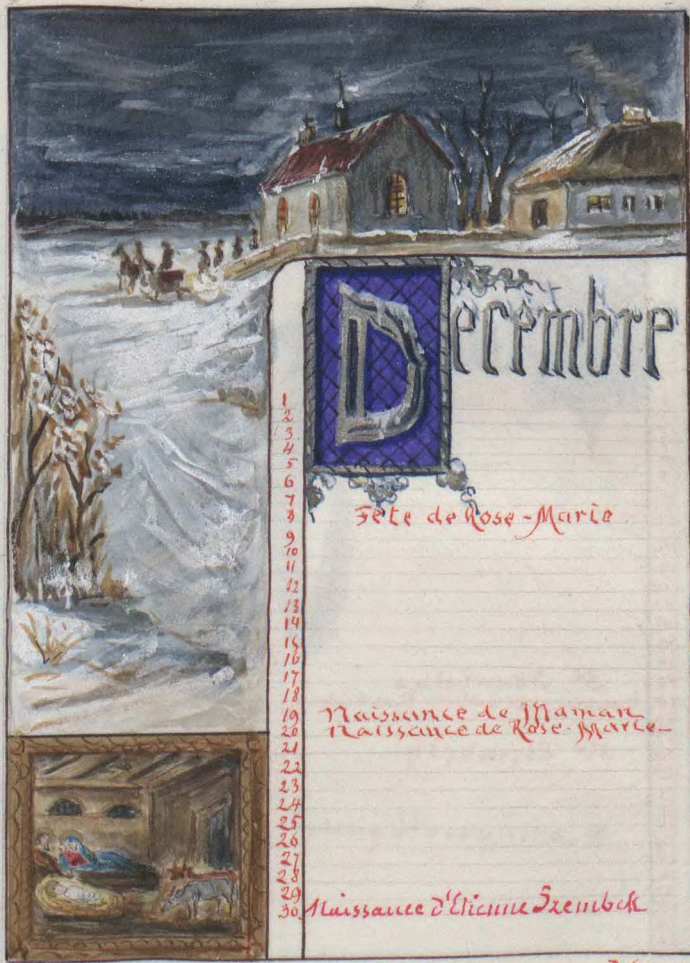 Decembre
1
2
3
4
5
6
7
8 Fête de Rose-Marie
9
10
11
12
13
14
15
16
17
18
19 Naissance de Maman
20 Naissance de Rose-Marie
21
22
23
24
25
26
27
28
29
30 Naissance d'Etienne Szembek